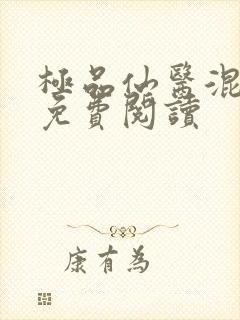 極品仙醫混
免費閱讀
康有為